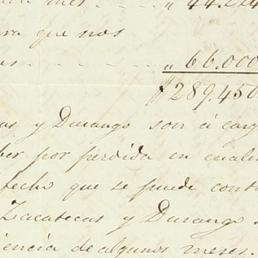 " 44.
que nos
" 66.000
$ 289.450
y Durango son á carg
ber por perdida en cual
techo que se puede cont
Zacatecas y Durango.
iencia de algunos meses.